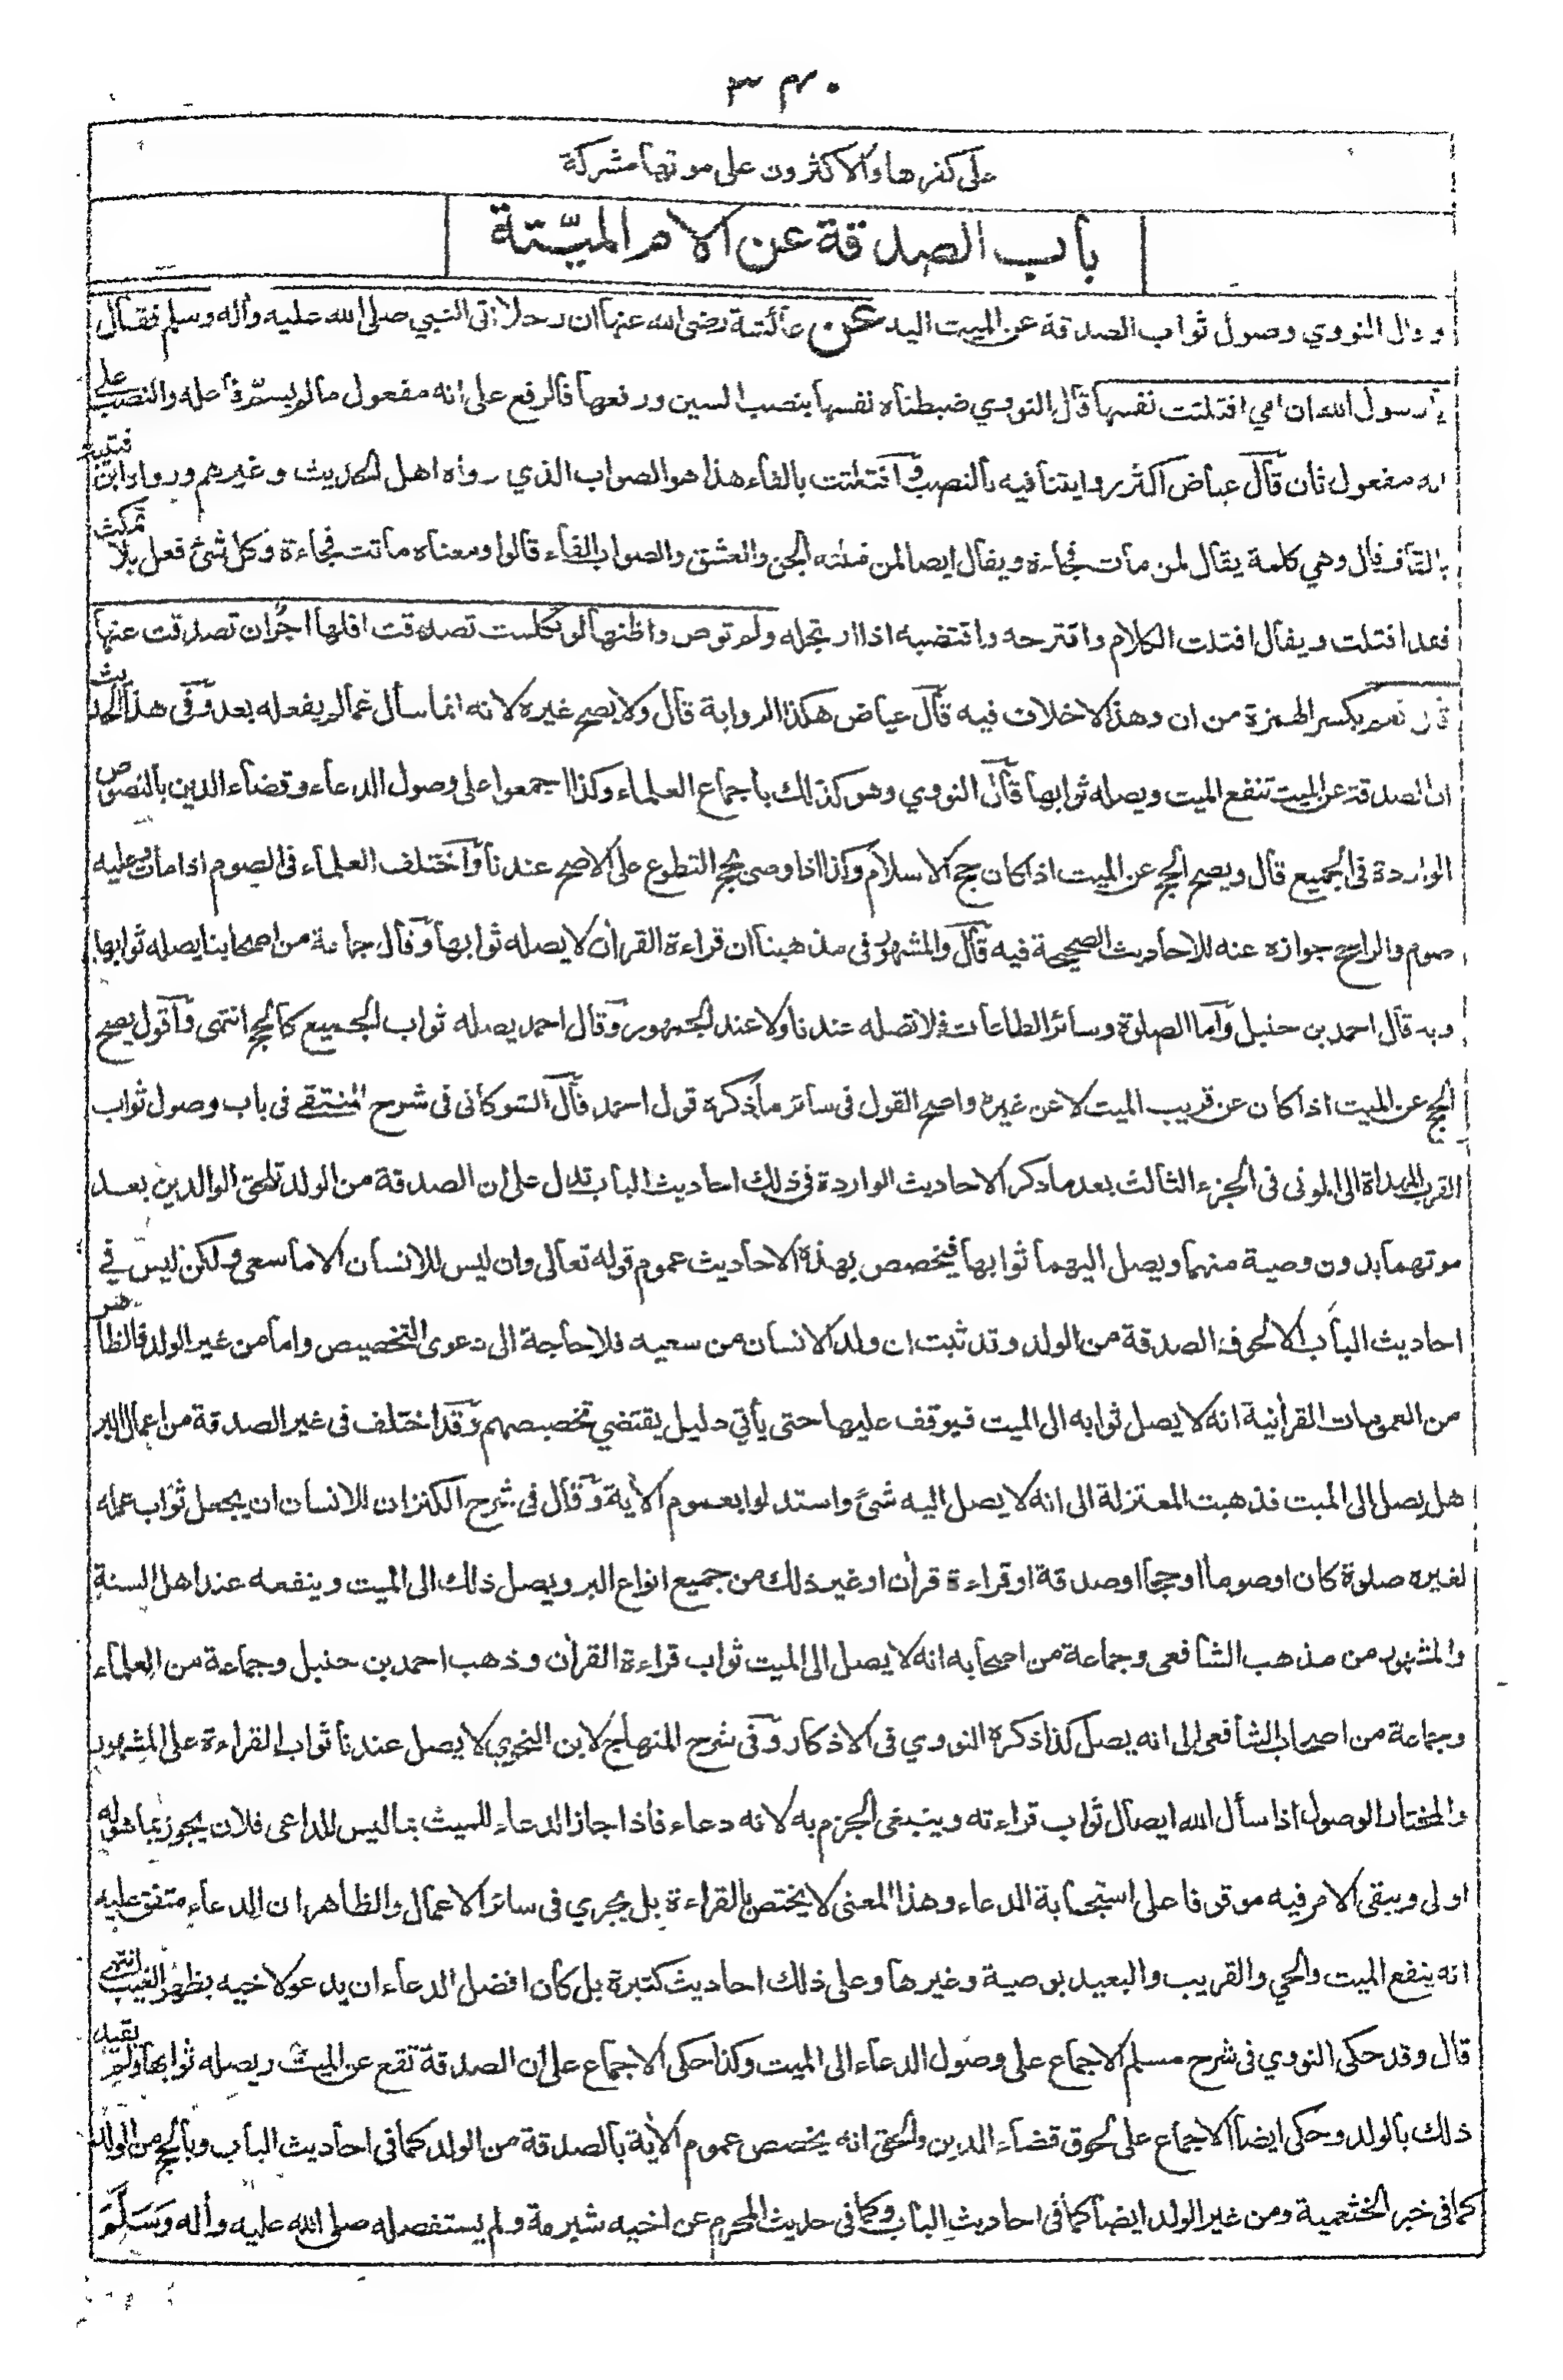 ٣٤٠
على كفرها والاكثرون على موتها مشركة
باب الصدقة عن الام الميّتة
وقال النووي وصول ثواب الصدقة عن الميت اليه عن عائشة رضي الله عنها ان رجلا اتى النبي صلى الله عليه وأله وسلم فقال
يا رسول الله ان امي افتلتت نفسها قال النووي ضبطناه نفسها بنصب السين ورفعها فالرفع على انه مفعول مالم يسم فاعله والنصب على
انه مفعول ثان قال عياض اكثر روايتنا فيه بالنصب وافتلتت بالفاء هذا هو الصواب الذي رواه اهل الحديث وغيرهم ورواه ابن قتيبة
بالقاف قال وهي كلمة يقال لمن مات فجاءة ويقال ايضا لمن قتلته الجن والعشق والصواب الفاء قالوا ومعناه ماتت فجاءة وكل شئ فعل بلا تمكث
فقد افتلت ويقال افتلت الكلام واقترحه واقتضبه اذا ارتجله ولم توص واظنها لو تكلمت تصدقت افلها اجر ان تصدقت عنها
قال نعم بكسر الهمزة من ان وهذا لا خلاف فيه قال عياض هكذا الرواية قال ولا يصح غيره لانه انما سأل عما لم يفعله بعد وفى هذا الحديث
ان الصدقة عن الميت تنفع الميت ويصله ثوابها قال النووي وهو كذلك باجماع العلماء وكذا اجمعوا على وصول الدعاء وقضاء الدين بالنصوص
الواردة فى الجميع قال ويصح الحج عن الميت اذا كان حج الاسلام وكذا اذا وصى بحج التطوع على الاصح عندنا واختلف العلماء فى الصوم اذا مات وعليه
صوم والراجح جوازه عنه للاحاديث الصحيحة فيه قال والمشهور فى مذهبنا ان قراءة القرأن لا يصله ثوابها وقال جماعة من اصحابنا يصله ثوابها
وبه قال احمد بن حنبل واما الصلوة وسائر الطاعات فلا تصله عندنا ولا عند الجمهور وقال احمد يصله ثواب الجميع كالحج انتهى واقول يصح
الحج عن الميت اذا كان عن قريب الميت لا عن غيره واصح القول فى سائر ما ذكره قول احمد قال الشوكانى فى شرح المنتقى فى باب وصول ثواب
القرب المهداة الى الموتى فى الجزء الثالث بعد ما ذكر الاحاديث الواردة فى ذلك احاديث الباب تدل على ان الصدقة من الولد تلحق الوالدين بعد
موتهما بدون وصية منهما ويصل اليهما ثوابها فيخصص بهذه الاحاديث عموم قوله تعالى وان ليس للانسان الا ما سعى ولكن ليس في
احاديث الباب الا لحوق الصدقة من الولد وقد ثبت ان ولد الانسان من سعيه فلا حاجة الى دعوى التخصيص واما من غير الولد فالظاهر
من العمومات القرأنية انه لا يصل ثوابه الى الميت فيوقف عليها حتى يأتي دليل يقتضي تخصيصهم وقد اختلف فى غير الصدقة من اعمال البر
هل يصل الى الميت فذهبت المعتزلة الى انه لا يصل اليه شئ واستدلوا بعموم الأية وقال فى شرح الكنز ان للانسان ان يجعل ثواب عمله
لغيره صلوة كان او صوما او حجا او صدقة او قراءة قرأن او غير ذلك من جميع انواع البر ويصل ذلك الى الميت وينفعه عند اهل السنة
والمشهور من مذهب الشافعى وجماعة من اصحابه انه لا يصل الى الميت ثواب قراءة القرأن وذهب احمد بن حنبل وجماعة من العلماء
وجماعة من اصحاب الشافعى الى انه يصل كذا ذكره النووي فى الاذكار وفى شرح المنهاج لابن النحوي لا يصل عندنا ثواب القراءة على المشهور
والمختار الوصول اذا سأل الله ايصال ثواب قراءته وينبغى الجزم به لانه دعاء فاذا جاز الدعاء للميت بما ليس للداعى فلان يجوز بما هو له
اولى ويبقى الامر فيه موقوفا على استجابة الدعاء وهذا المعنى لا يختص بالقراءة بل يجري فى سائر الاعمال والظاهر ان الدعاء متفق عليه
انه ينفع الميت والحي والقريب والبعيد بوصية وغيرها وعلى ذلك احاديث كثيرة بل كان افضل الدعاء ان يدعو لاخيه بظهر الغيب انتهى
قال وقد حكى النووي فى شرح مسلم الاجماع على وصول الدعاء الى الميت وكذا حكى الاجماع على ان الصدقة تقع عن الميت ويصله ثوابها ولم يقيد
ذلك بالولد وحكى ايضا الاجماع على لحوق قضاء الدين والحق انه يخصص عموم الأية بالصدقة من الولد كما فى احاديث الباب وبالحج من الولد
كما فى خبر الخثعمية ومن غير الولد ايضا كما فى احاديث الباب وكما فى حديث المحرم عن اخيه شبرمة ولم يستفصله صلى الله عليه وأله وَسَلَّمَ